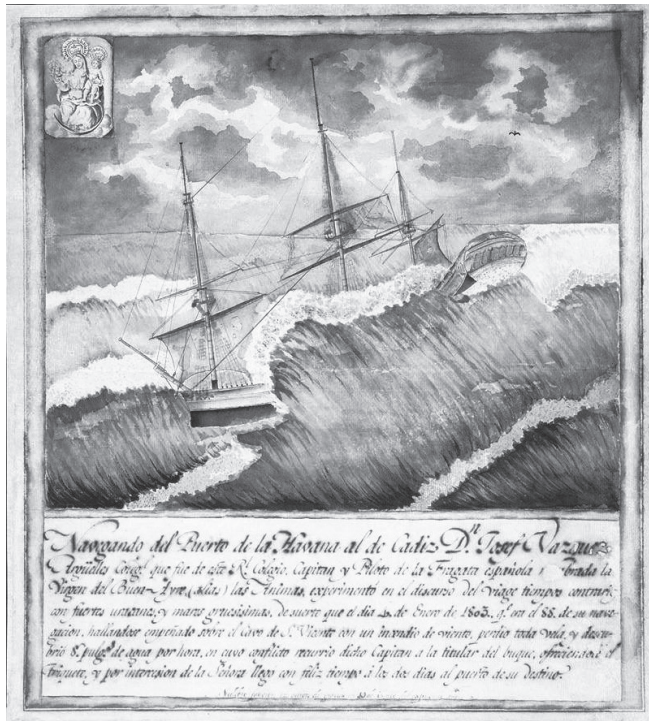 Navegando del Puerto de la Havana al de Cadiz Dn. Josef Vazquez
Arguelles Coleg.l que fue de este Rl. Colegio, Capitan y Piloto de la Fragata española brada la
Virgen del Buen Ayre, (alias) las Animas, experimentó en el discurso del viage tiempos contrario
con fuertes uracanes, y mares gruesisimas, de suerte que el dia de Enero de 1803, q.e era el 88. de su nave-
gacion, hallandose empeñado sobre el Cavo de Sn. Vicente con un incendio de viento, perdio toda vela, y descu-
brió 8. pulgs. de agua por hora, en cuyo conflicto recurrio dicho Capitan a la titular del buque, ofreciendole el
trinquete, y por intercesion de la Señora llego con feliz tiempo á los dos dias al puerto de su destino.